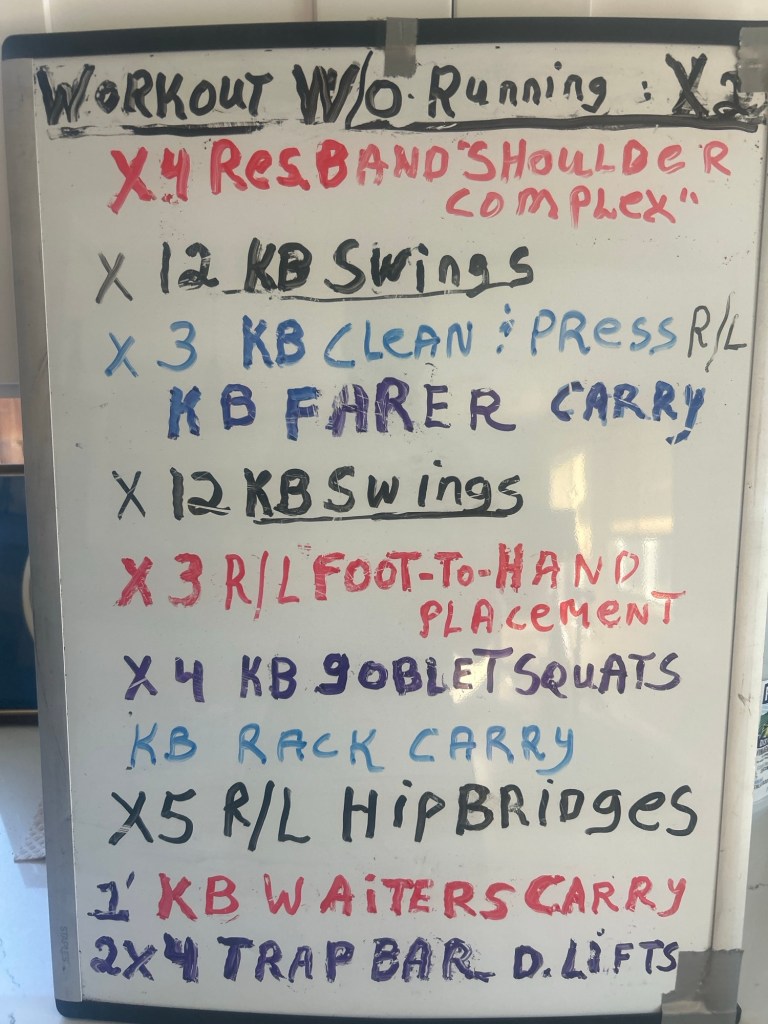 WORKOUT W/O Running : X2
X4 Res. BAND "SHOULDER
COMPLEX"
X 12 KB Swings
X 3 KB CLEAN & PRESS R/L
KB FARER CARRY
X 12 KB Swings
X 3 R/L FOOT-TO-HAND
PLACEMENT
X 4 KB GOBLET SQUATS
KB RACK CARRY
X5 R/L HipBRidges
1' KB WAiTERS CARRY
2X4 TRAP BAR D. LiFTS